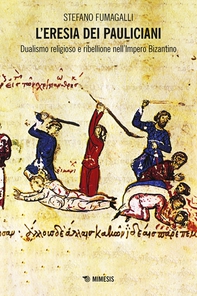 STEFANO FUMAGALLI
L'ERESIA DEI PAULICIANI
Dualismo religioso e ribellione nell'Impero Bizantino
MIMESIS